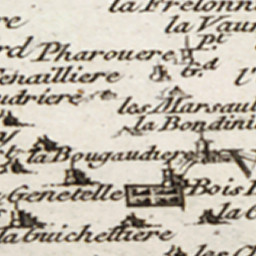 la Frelonn
re
la Vaur
rd Pharouere
P.t
G.d
henailliere
l'
udriere
les Marsaul
la Bondini
la Bougaudiere
Genetelle
Bois
la G
la Guichettiere
les Ch